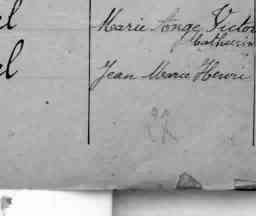 el Marie Ange Victor
Catherin
el Jean Marie Henri